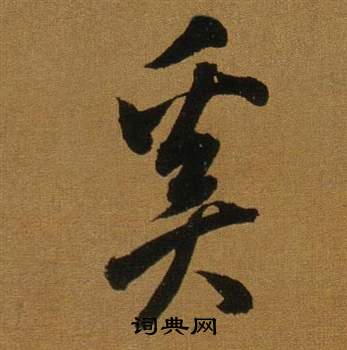 奚
词典网